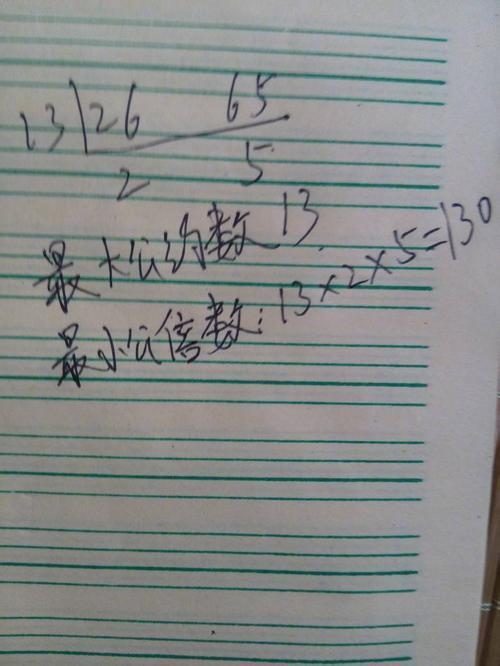 13 26 65
2 5
最大公约数 13
最小公倍数:13×2×5=130